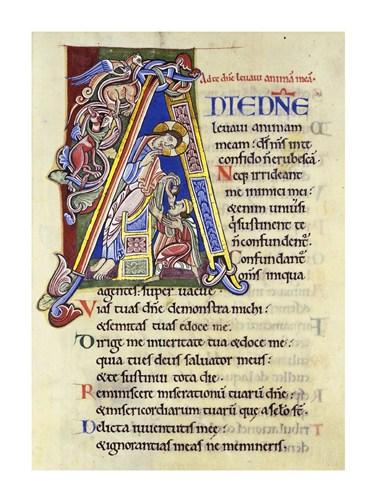 Ad te dñe levavi animã meã.
AD TE DÑE
levavi animam
meam: dš mš in te
confido ñ erubescã.
Neq; irrideant
me inimici mei:
& enim univsi
q sustinent te
ñ confundent.
Confundant
oms iniqua
agentes: super vacue.
Vias tuas dñe demonstra michi:
& semitas tuas edoce me.
Dirige me in veritate tua & doce me:
quia tu es deus salvator meus:
& te sustinui tota die.
Reminiscere miserationū tuarū dñe:
& misericordiarum tuarū que a sclo st.
Delicta iuventutis mee:
& ignorantias meas ne memineris.